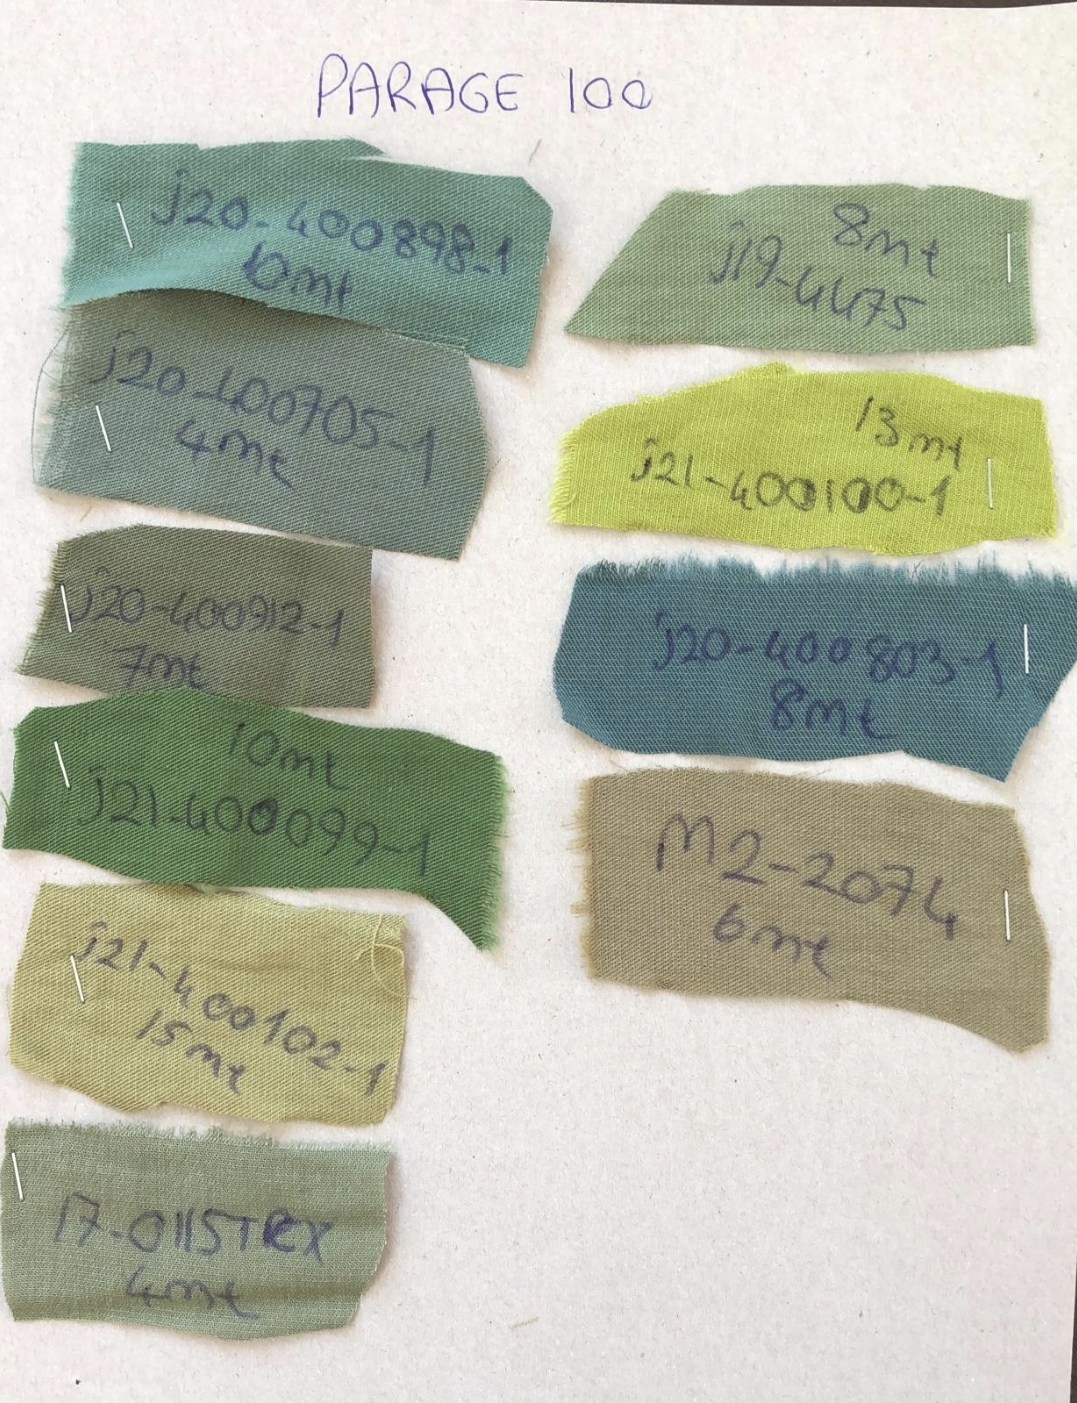 PARAGE 100
j20-400898-1
10mt
j20-400705-1
4mt
j20-400912-1
7mt
10mt
j21-400099-1
j21-400102-1
15mt
17-0115TCX
4mt
8mt
j19-4475
13mt
j21-400100-1
j20-400803-1
8mt
M2-2074
6mt